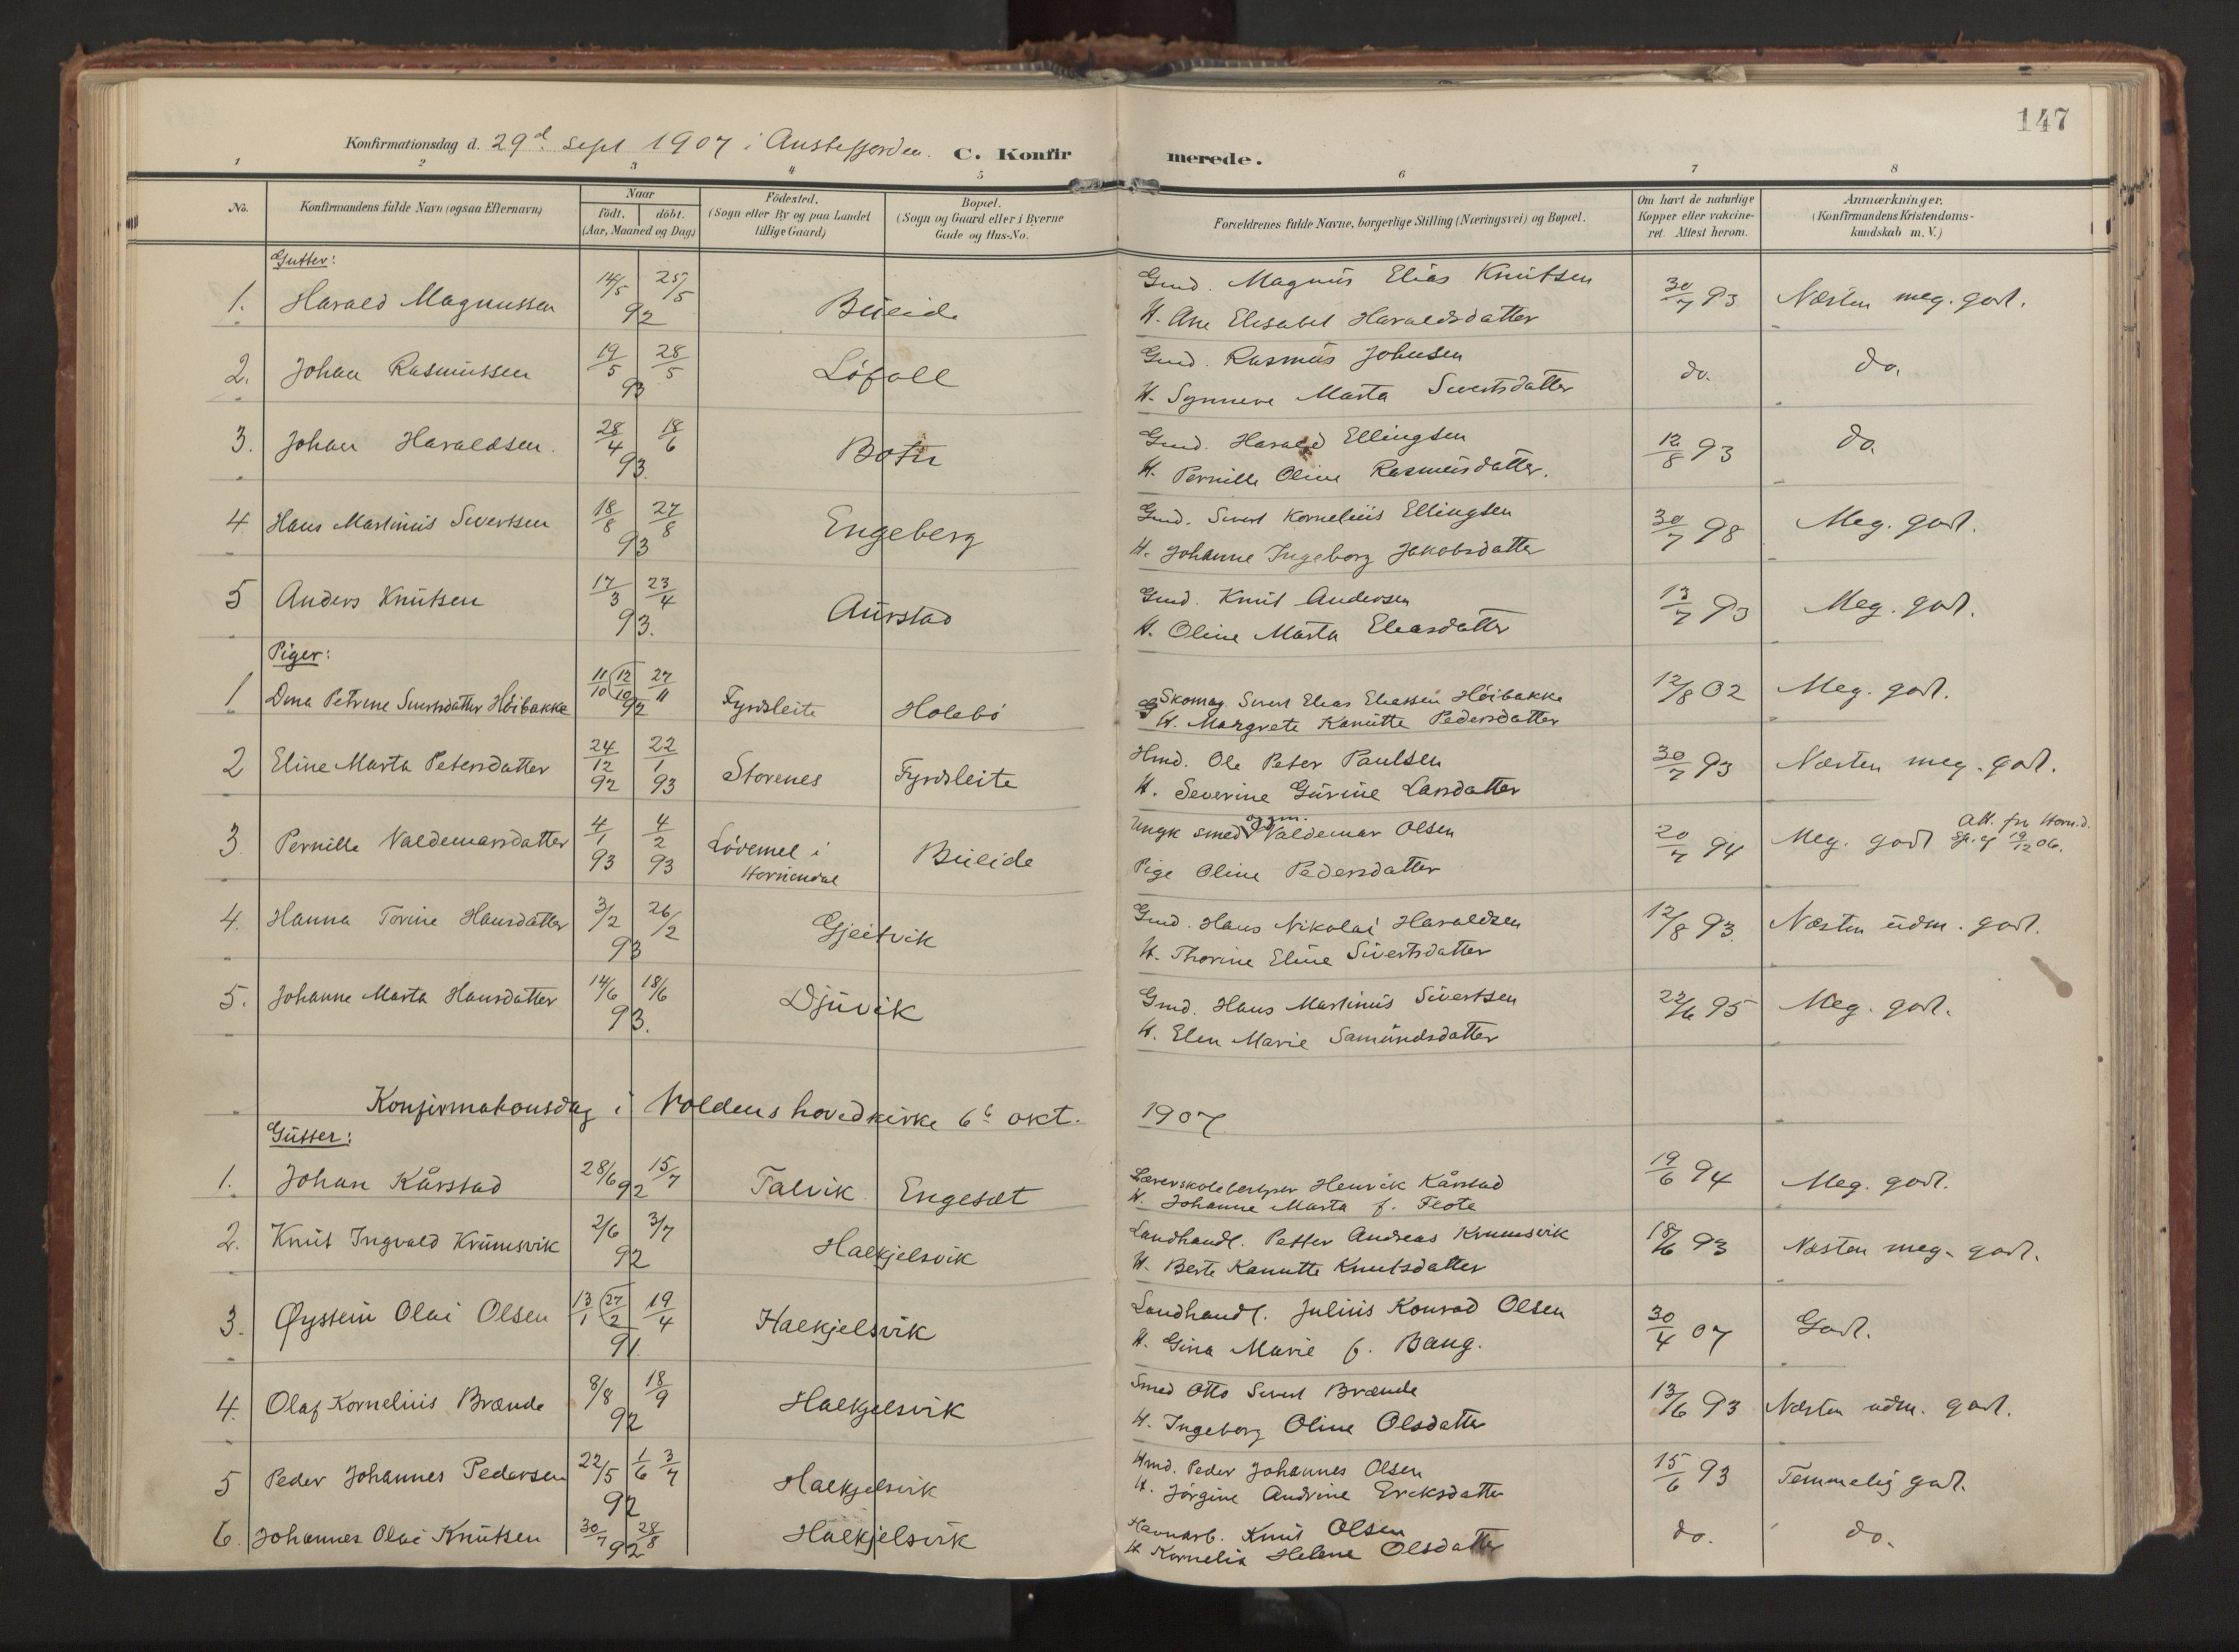 147
Konfirmationsdag d. 29d. Sept 1907 i Austefjorden. C. Konfirmerede.
1 2 3 4 5 6 7 8
No. Konfirmandens fulde Navn (ogsaa Efternavn) Naar født. døbt. (Aar, Maaned og Dag) Fødested. (Sogn eller By og paa Landet tillige Gaard) Bopæl. (Sogn og Gaard eller i Byerne Gade og Hus-No. Forældrenes fulde Navne, borgerlige Stilling (Næringsvei) og Bopæl. Om havt de naturlige Kopper eller vakcineret. Attest herom. Anmærkninger. (Konfirmandens Kristendomskundskab m. V.)
Gutter:
1. Harald Magnussen 14/5 25/5 92 Bueide Gmd. Magnus Elias Knutsen 30/7 93 Næsten meg. godt.
H. Ane Elisabet Haraldsdatter
2. Johan Rasmussen 19/5 28/5 93 Løfoll Gmd. Rasmus Johnsen do. do.
H. Synneve Marta Sivertsdatter
3. Johan Haraldsen. 28/4 18/6 93. Botn Gmd. Harald Ellingsen 12/8 93 do.
H. Pernille Oline Rasmusdatter.
4 Hans Martinus Sivertsen 18/8 27/8 93 Engeberg Gmd. Sivert Kornelius Ellingsen 30/7 98 Meg. godt.
H. Johanne Ingeborg Jakobsdatter
5 Anders Knutsen 17/3 23/4 93. Aurstad Gmd. Knut Andersen 13/7 93 Meg. godt.
H. Oline Marta Eliasdatter
Piger:
1 Dina Petrine Sivertsdatter Høibakke 11/10 (12/10) 27/11 92 Fyrdsleite Holebø Skomag. Sivert Elias Eliassen Høibakke 12/8 02 Meg. godt.
H. Margrete Kanutte Pedersdatter
2 Eline Marta Petersdatter 24/12 92 22/1 93 Storenes Fyrdsleite Hmd. Ole Peter Paulsen 30/7 93 Næsten meg. godt.
H. Severine Gurine Larsdatter
3. Pernille Valdemarsdatter 4/1 93 4/2 93 Lødemel i Hornindal Bueide Ungk smed og gm. Valdemar Olsen 20/7 94 Meg. godt Att. fra Hornd. 19/12 06.
Pige Oline Pedersdatter
4. Hanna Torine Hansdatter 3/2 26/2 93 Gjeitvik Gmd. Hans Nikolai Haraldsen 12/8 93. Næsten udm. godt.
H. Thorine Eline Sivertsdatter
5. Johanne Marta Hansdatter 14/6 18/6 93. Djuvik Gmd. Hans Martinus Sivertsen 22/6 95 Meg. godt.
H. Elen Marie Samundsdatter
Konfirmationsdag i Voldens hovedkirke 6te okt. 1907
Gutter:
1. Johan Kårstad 28/6 15/7 92 Talvik Engeset Lærerskolebestyrer Henrik Kårstad 19/6 94 Meg. godt.
H. Johanne Marta f. Flote
2. Knut Ingvald Krumsvik 2/6 3/7 92 Halkjelsvik Landhandl. Petter Andreas Krumsvik 18/6 93 Næsten meg. godt.
H. Berte Kanutte Knutsdatter
3. Øystein Olai Olsen 13/1 (27/2) 19/4 91. Halkjelsvik Landhandl. Julius Konrad Olsen 30/4 07 Godt.
H. Gina Marie f. Bang.
4. Olaf Kornelius Brænde 8/8 18/9 92 Halkjelsvik Smed Otto Sivert Brænde 13/6 93 Næsten udm. godt.
H. Ingeborg Oline Olsdatter
5 Peder Johannes Pedersen 22/5 1/6 3/7 92 Halkjelsvik Hmd. Peder Johannes Olsen 15/6 93 Temmelig godt.
H. Jørgine Andrine Eriksdatter
6. Johannes Olai Knutsen 30/7 28/8 92 Halkjelsvik Havnarb. Knut Olsen do. do.
H Kornelia Helene Olsdatter